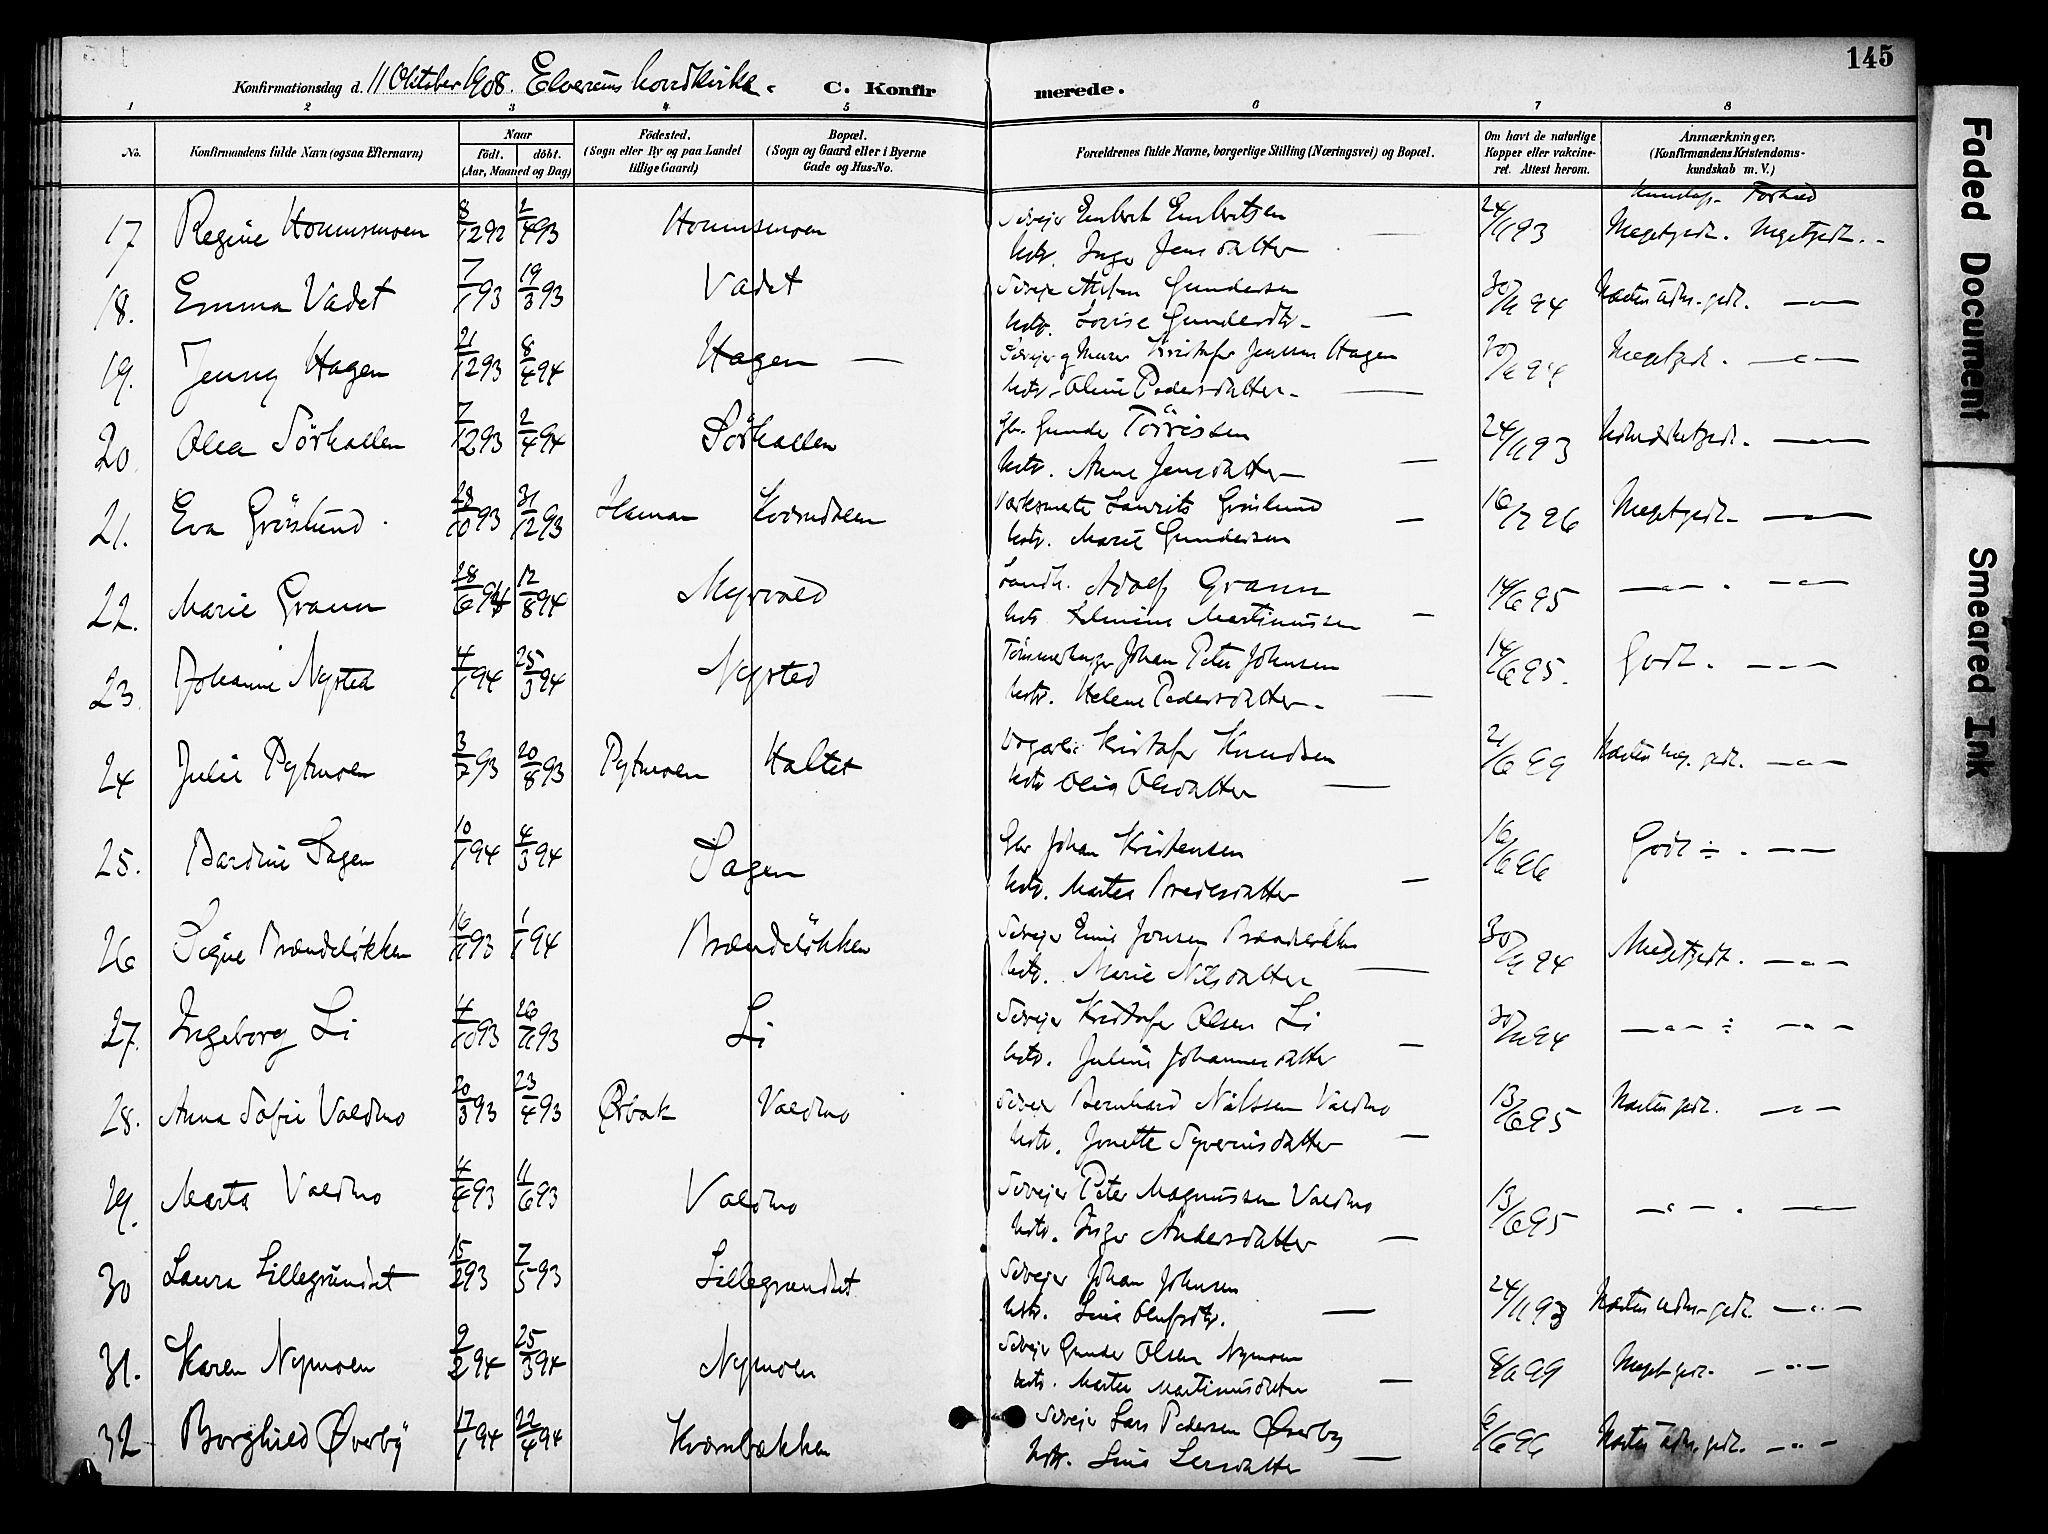 145
Konfirmationsdag d. 11 Oktober 1908. Elverum hovedkirke. C. Konfirmerede.
1 2 3 4 5 6 7 8
No. Konfirmandens fulde Navn (ogsaa Efternavn) Naar födt. döbt. (Aar, Maaned og Dag) Födested. (Sogn eller By og paa Landet tillige Gaard) Bopæl. (Sogn og Gaard eller i Byerne Gade og Hus-No. Forældrenes fulde Navne, borgerlige Stilling (Næringsvei) og Bopæl. Om havt de naturlige Kopper eller vakcineret. Attest herom. Anmærkninger. (Konfirmandens Kristendomskundskab m. V.)
Kundsk. Forhold
17 Regine Hommsmoen 8/12 92 2/4 93 Hommsmoen Selvejer Embret Embretsen
Hstr. Inger Jensdatter 24/11 93 Megetgodt. Megetgodt.
18. Emma Vadet 7/1 93 19/3 93 Vadet Selvejer Gundersen
Hstr. Lovise Gundersdtr. 30/11 94 Næsten udm. godt. —"—
19. Jenny Hagen 21/12 93 8/4 94 Hagen — Selvejer og Murer Kristofer Jensen Hagen
Hstr. Oline Pedersdatter. — Megetgodt. —"—
20. Olea Sörhallen 7/12 93 2/4 94 Sörhallen Gbr. Gunder Törrissen
Hstr. Anne Jensdatter — 24/11 93 Udmærketgodt. —"—
21. Eva Gröslund 28/10 93 31/12 93 Hamar Kværndalen Laurits Gröslund
Hstr. Marie Gundersen — 16/7 96 Megetgodt. —"—
22. Marie Grann 28/6 94 12/8 94 Myrvold Landh. Adolf Grann
Hstr. Elmine Martinussen — 14/6 95 —"— . —"—
23 Johanne Nysted 4/1 94 25/3 94 Nysted Tömmerhugger Johan Peter Johnsen
Hstr. Helene Pedersdatter. — 14/6 95. Godt. —"—
24 Julie Pytmoen 3/7 93 20/8 93 Pytmoen Holtet Kristofer Knudsen
Hstr. Olia Olsdatter — 21/6 99 Næsten meg. godt. —"—
25. Bardine Sagen 10/1 94 4/3 94 Sagen Gbr Johan Kristensen
Hstr. Martea Bredesdatter — 16/6 96 Godt ÷ . —"—
26 Signe Brændelökken 16/11 93 1/1 94 Brændelökken Selvejer Jonsen Brændelökken
Hstr. Marie Nilsdatter — 30/11 94 Megetgodt. —"—
27. Ingeborg Li 4/10 93 26/11 93 Li Selvejer Kristofer Olsen Li
Hstr. Juline Johannesdatter — 30/11 94 —"— ÷ —"—
28. Anna Sofie Valdmo 20/3 93 23/4 93 Ørbæk Valdmo Selvejer Bernhard Nilssen Valdmo
Hstr. Jonette Syverinsdatter — 13/6 95 Næsten godt. —"—
29. Marta Valdmo 4/4 93 11/6 93 Valdmo Selvejer Peter Magnussen Valdmo
Hstr. Inger Andersdatter — 13/6 95 —"— . —"—
30 Laura Lillegrundset 15/2 93 7/5 93 Lillegrundset Selvejer Johan Johnsen
Hstr. Lina Olufsdtr. — 24/11 93 Næsten udm. godt. —"—
31. Karen Nymoen 9/2 94 25/3 94 Nymoen Selvejer Gunder Olsen Nymoen
Hstr. Martea Martinusdatter — 8/6 99 Megetgodt. —"—
32 Borghild Øverby 17/1 94 22/4 94 Kværnbækken Selvejer Lars Pedersen Øverby
Hstr. Lina Larsdatter — 9/6 96 Næsten udm. godt. —"—
Faded Document
Smeared Ink